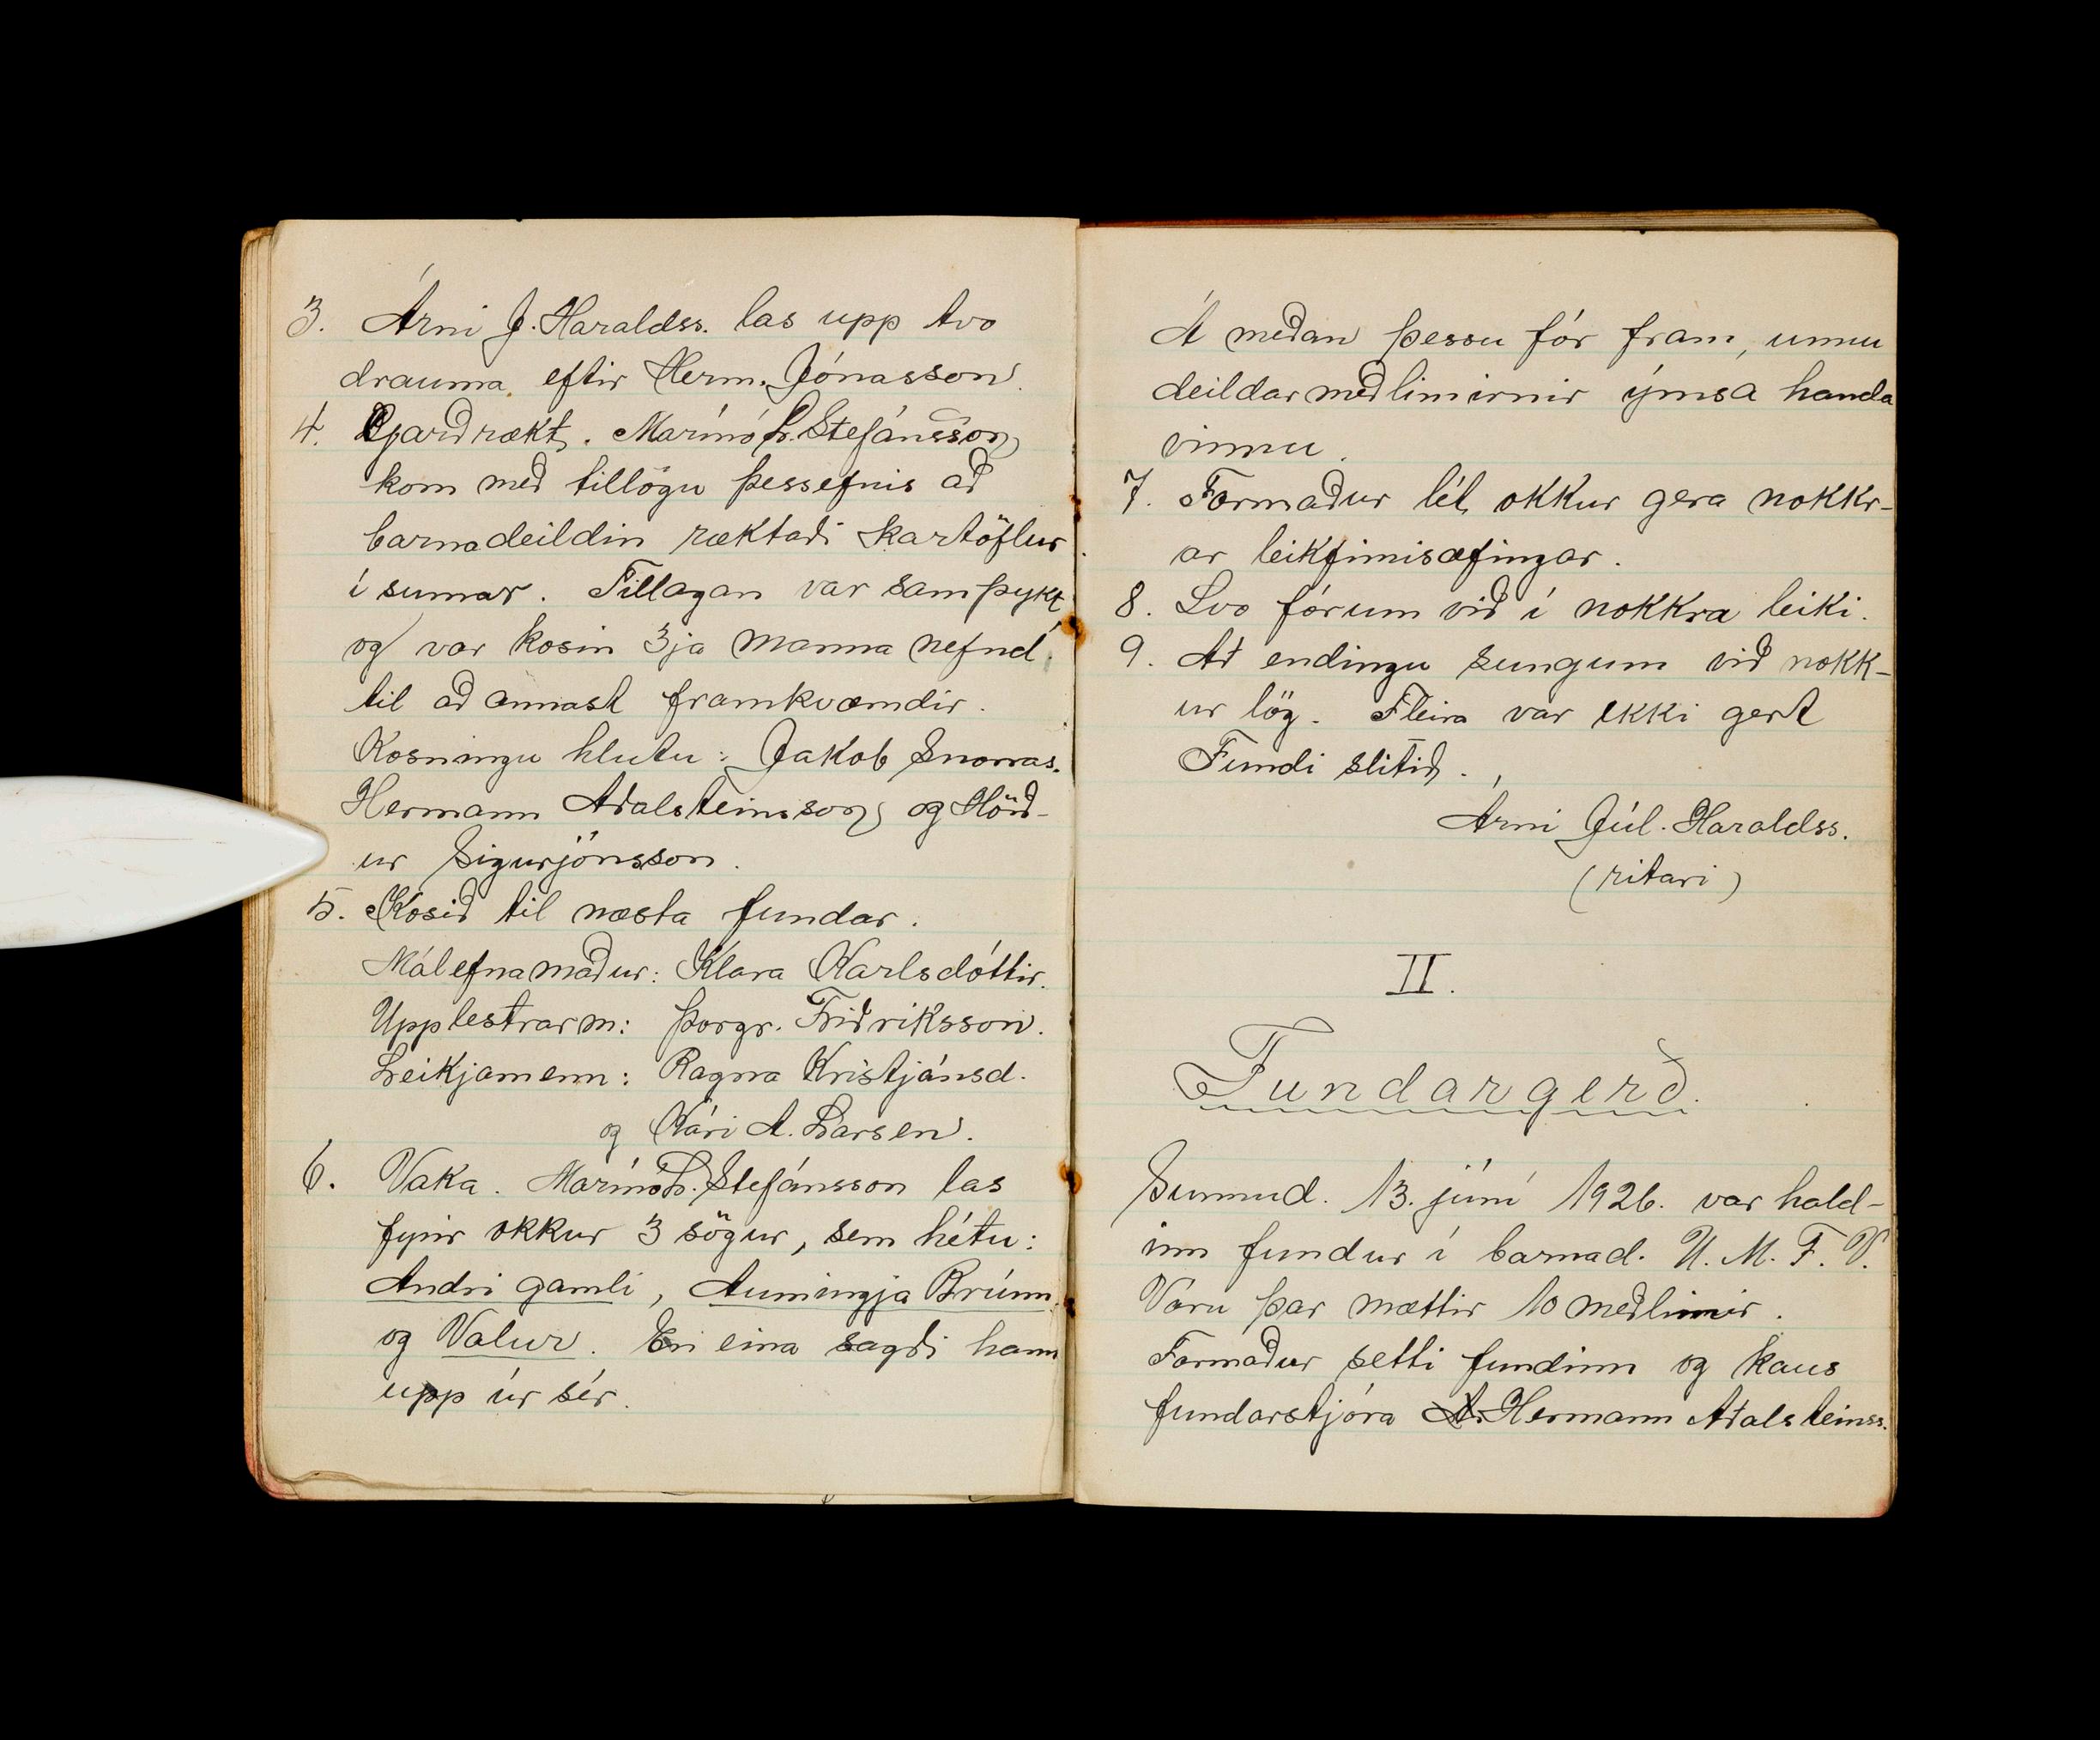 3. Árni J. Haraldss. las upp tvo
drauma eftir Herm. Jónasson.
4. Garðrækt. Marinó L. Stefánsson
kom með tillögu þessefnis að
barnadeildin ræktaði kartöflur
í sumar. Tillagan var samþykt
og var kosin 3ja manna nefnd
til að annast framkvæmdir.
Kosningu hlutu: Jakob Snorras.
Hermann Aðalsteinsson og Hörð-
ur Sigurjónsson.
5. Kosið til næsta fundar.
Málefnamaður: Klara Karlsdóttir.
Upplestrarm: Þorgr. Friðriksson.
Leikjamenn: Ragna Kristjánsd.
og Kári A. Larsen.
6. Vaka. Marinó L. Stefánsson las
fyrir okkur 3 sögur, sem hétu:
Andri gamli, Aumingja Brúnn,
og Valur. En eina sagði hann
upp úr sér.
Á meðan þessu fór fram, unnu
deildarmeðlimirnir ýmsa handa
vinnu.
7. Formaður lét okkur gera nokkr-
ar leikfimisæfingar.
8. Svo fórum við í nokkra leiki.
9. Að endingu sungum við nokk-
ur lög. Fleira var ekki gert
Fundi slitið.
Árni Júl. Haraldss.
(ritari)
II.
Fundargerð.
Sunnud. 13. júní 1926. var hald-
inn fundur í barnad. U. M. F. V.
Voru þar mættir 10 meðlimir.
Formaður setti fundinn og kaus
fundarstjóra Hermann Aðalsteinss.